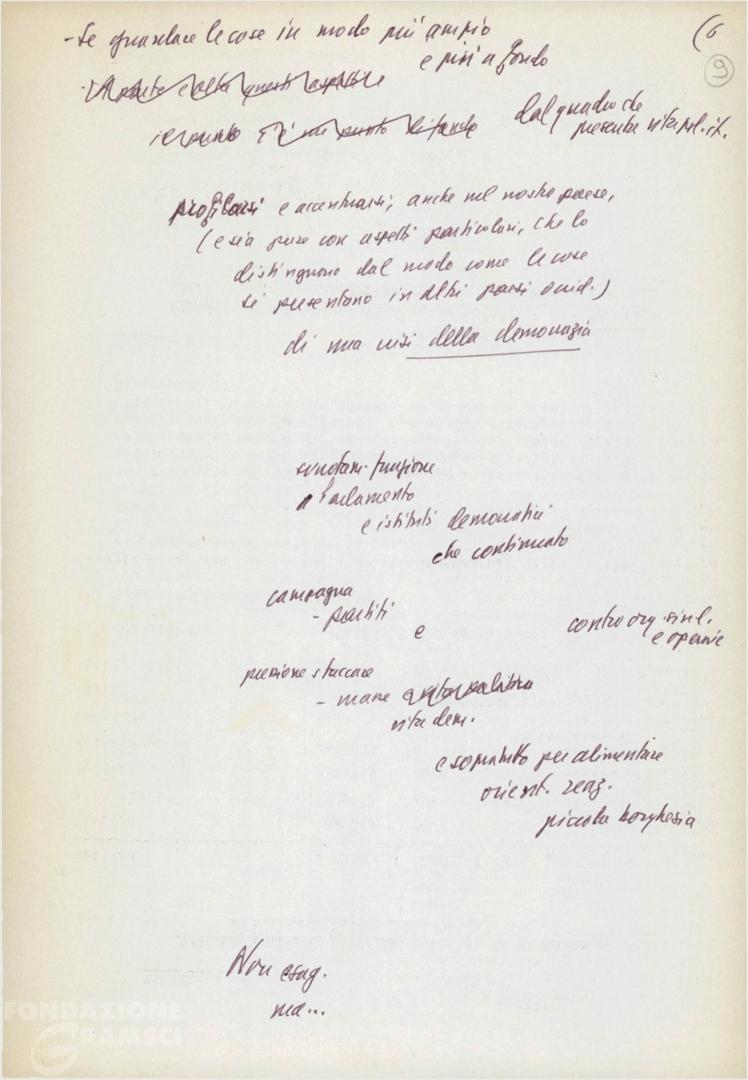 (6
9
- Se guardare le cose in modo più ampio
e più a fondo
dal quadro che
presenta vita pol. it.
profilarsi e accentuarsi, anche nel nostro paese,
(e sia pure con aspetti particolari, che lo
distinguono dal modo come le cose
si presentano in altri paesi occid.)
di una crisi della democrazia
svuotam. funzione
Parlamento
e istituti democratici
che continuato
campagna
- partiti
e
contro org. sind.
e operaie
pressione staccare
- masse
vita dem.
e soprattutto per alimentare
orient. reaz.
piccola borghesia
Non esag.
ma...
FONDAZIONE
GRAMSCI